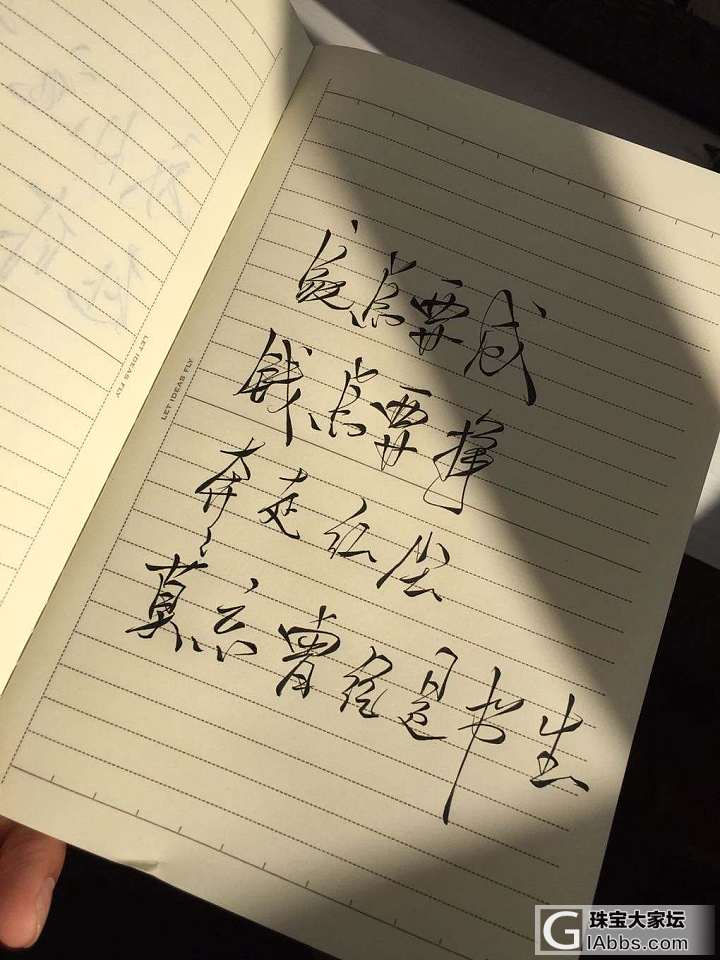 家总要成
钱总要挣
奔走红尘
莫忘曾经是书生
LET IDEAS FLY
LET IDEAS FLY
珠宝大家坛
GIAbbs.com